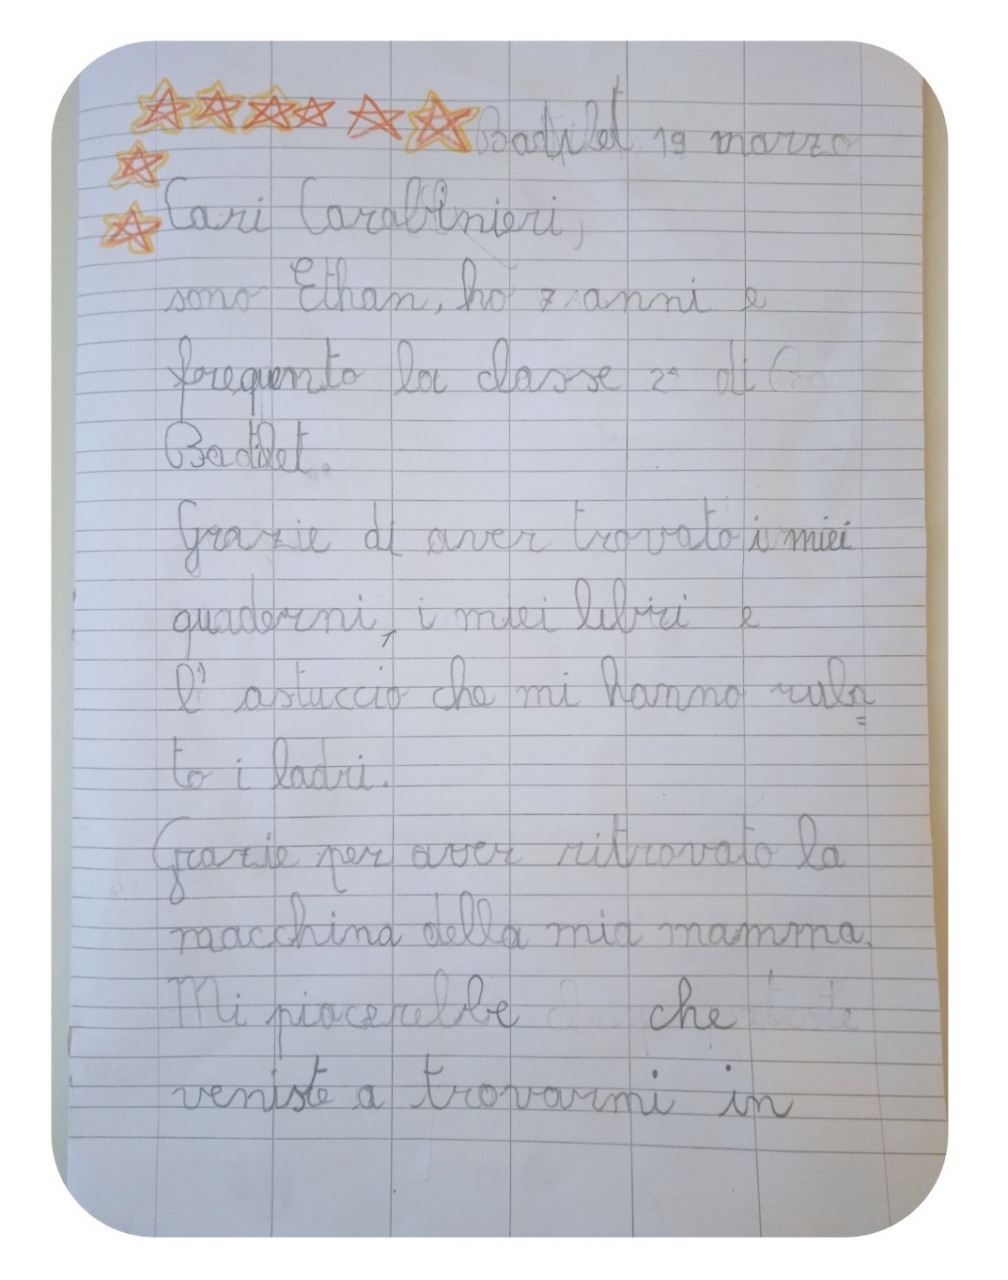 Badilet 19 marzo
Cari Carabinieri,
sono Ethan, ho 7 anni e
frequento la classe 2ª di
Badilet.
Grazie di aver trovato i miei
quaderni, i miei libri e
l'astuccio che mi hanno ruba
to i ladri.
Grazie per aver ritrovato la
macchina della mia mamma.
Mi piacerebbe che
veniste a trovarmi in